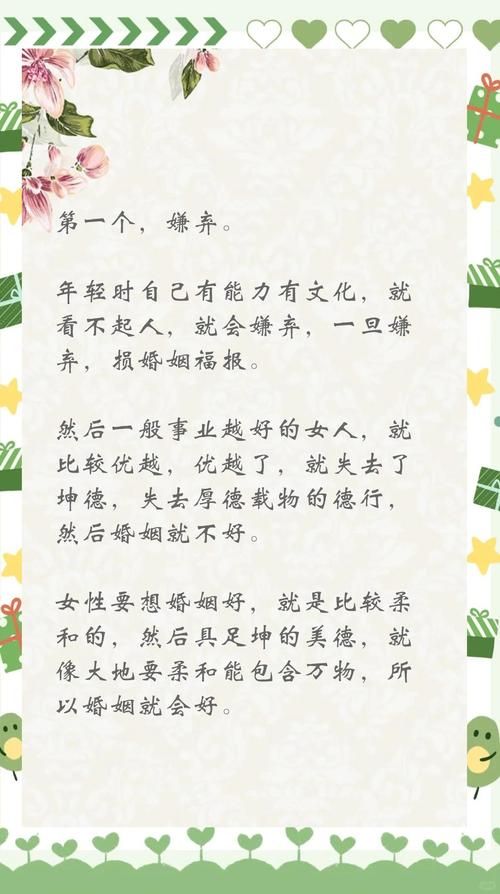 第一个，嫌弃。
年轻时自己有能力有文化，就
看不起人，就会嫌弃，一旦嫌
弃，损婚姻福报。
然后一般事业越好的女人，就
比较优越，优越了，就失去了
坤德，失去厚德载物的德行，
然后婚姻就不好。
女性要想婚姻好，就是比较柔
和的，然后具足坤的美德，就
像大地要柔和能包含万物，所
以婚姻就会好。